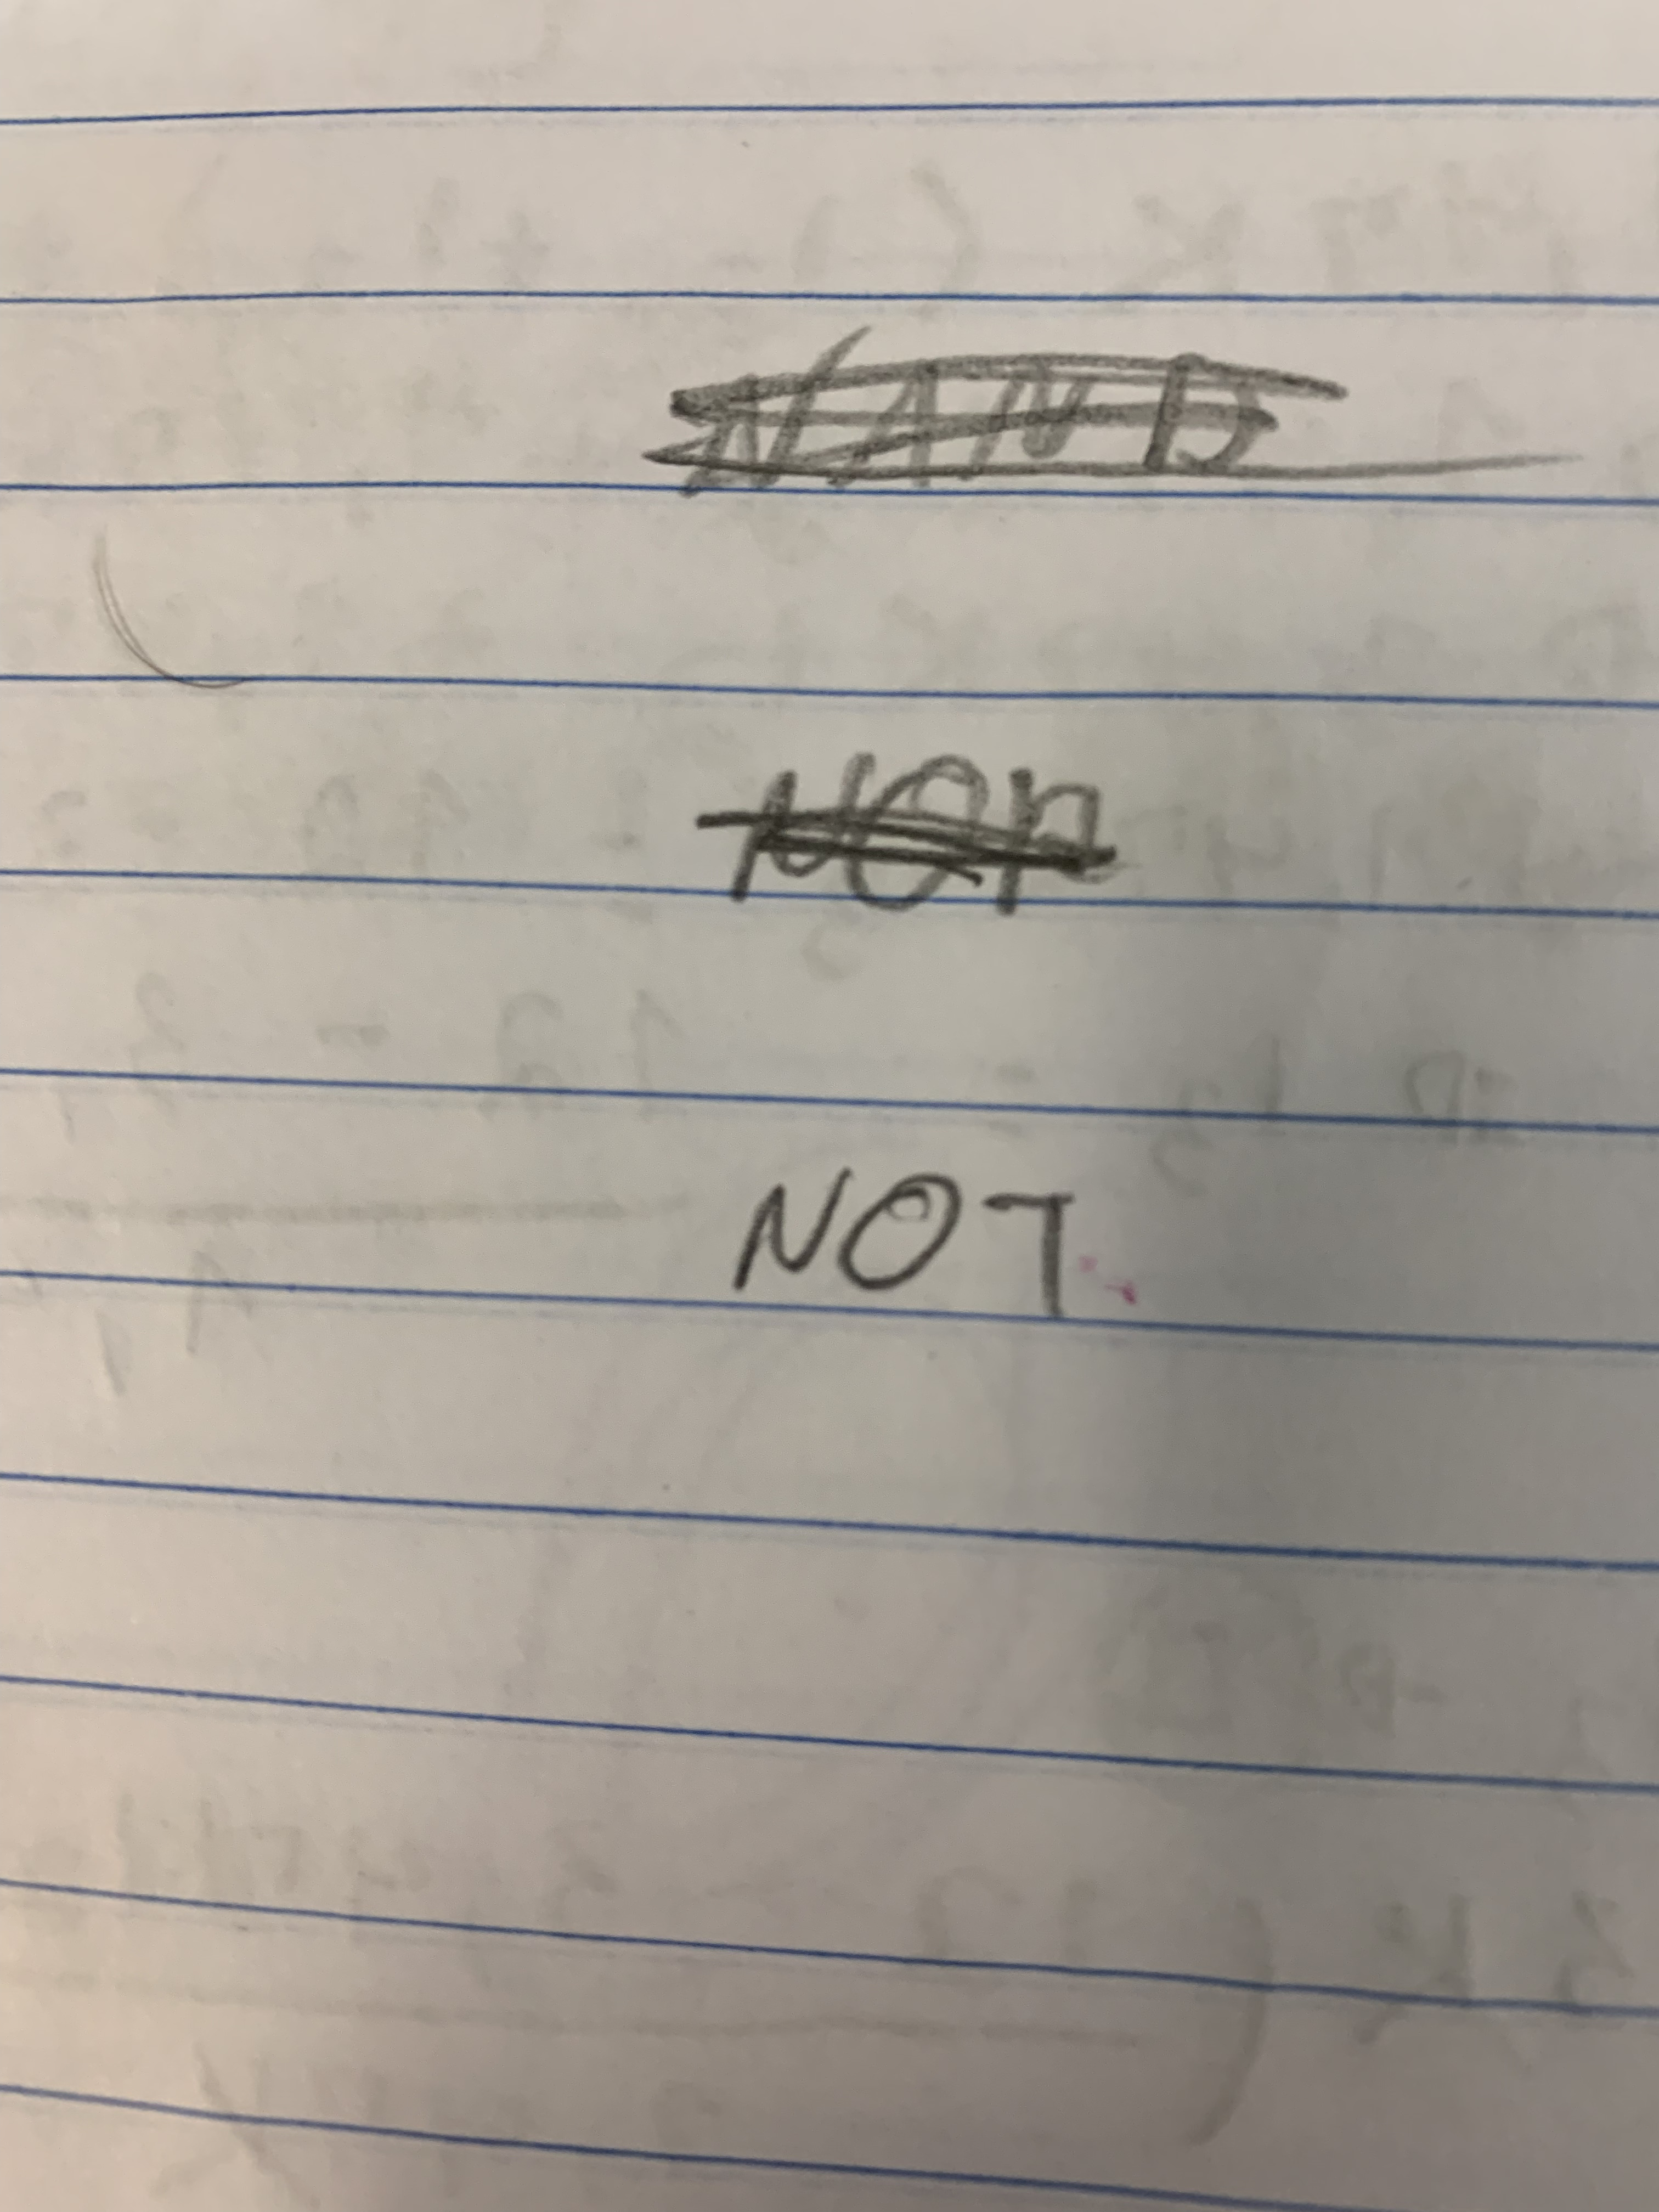 NAND
NOR
NOT